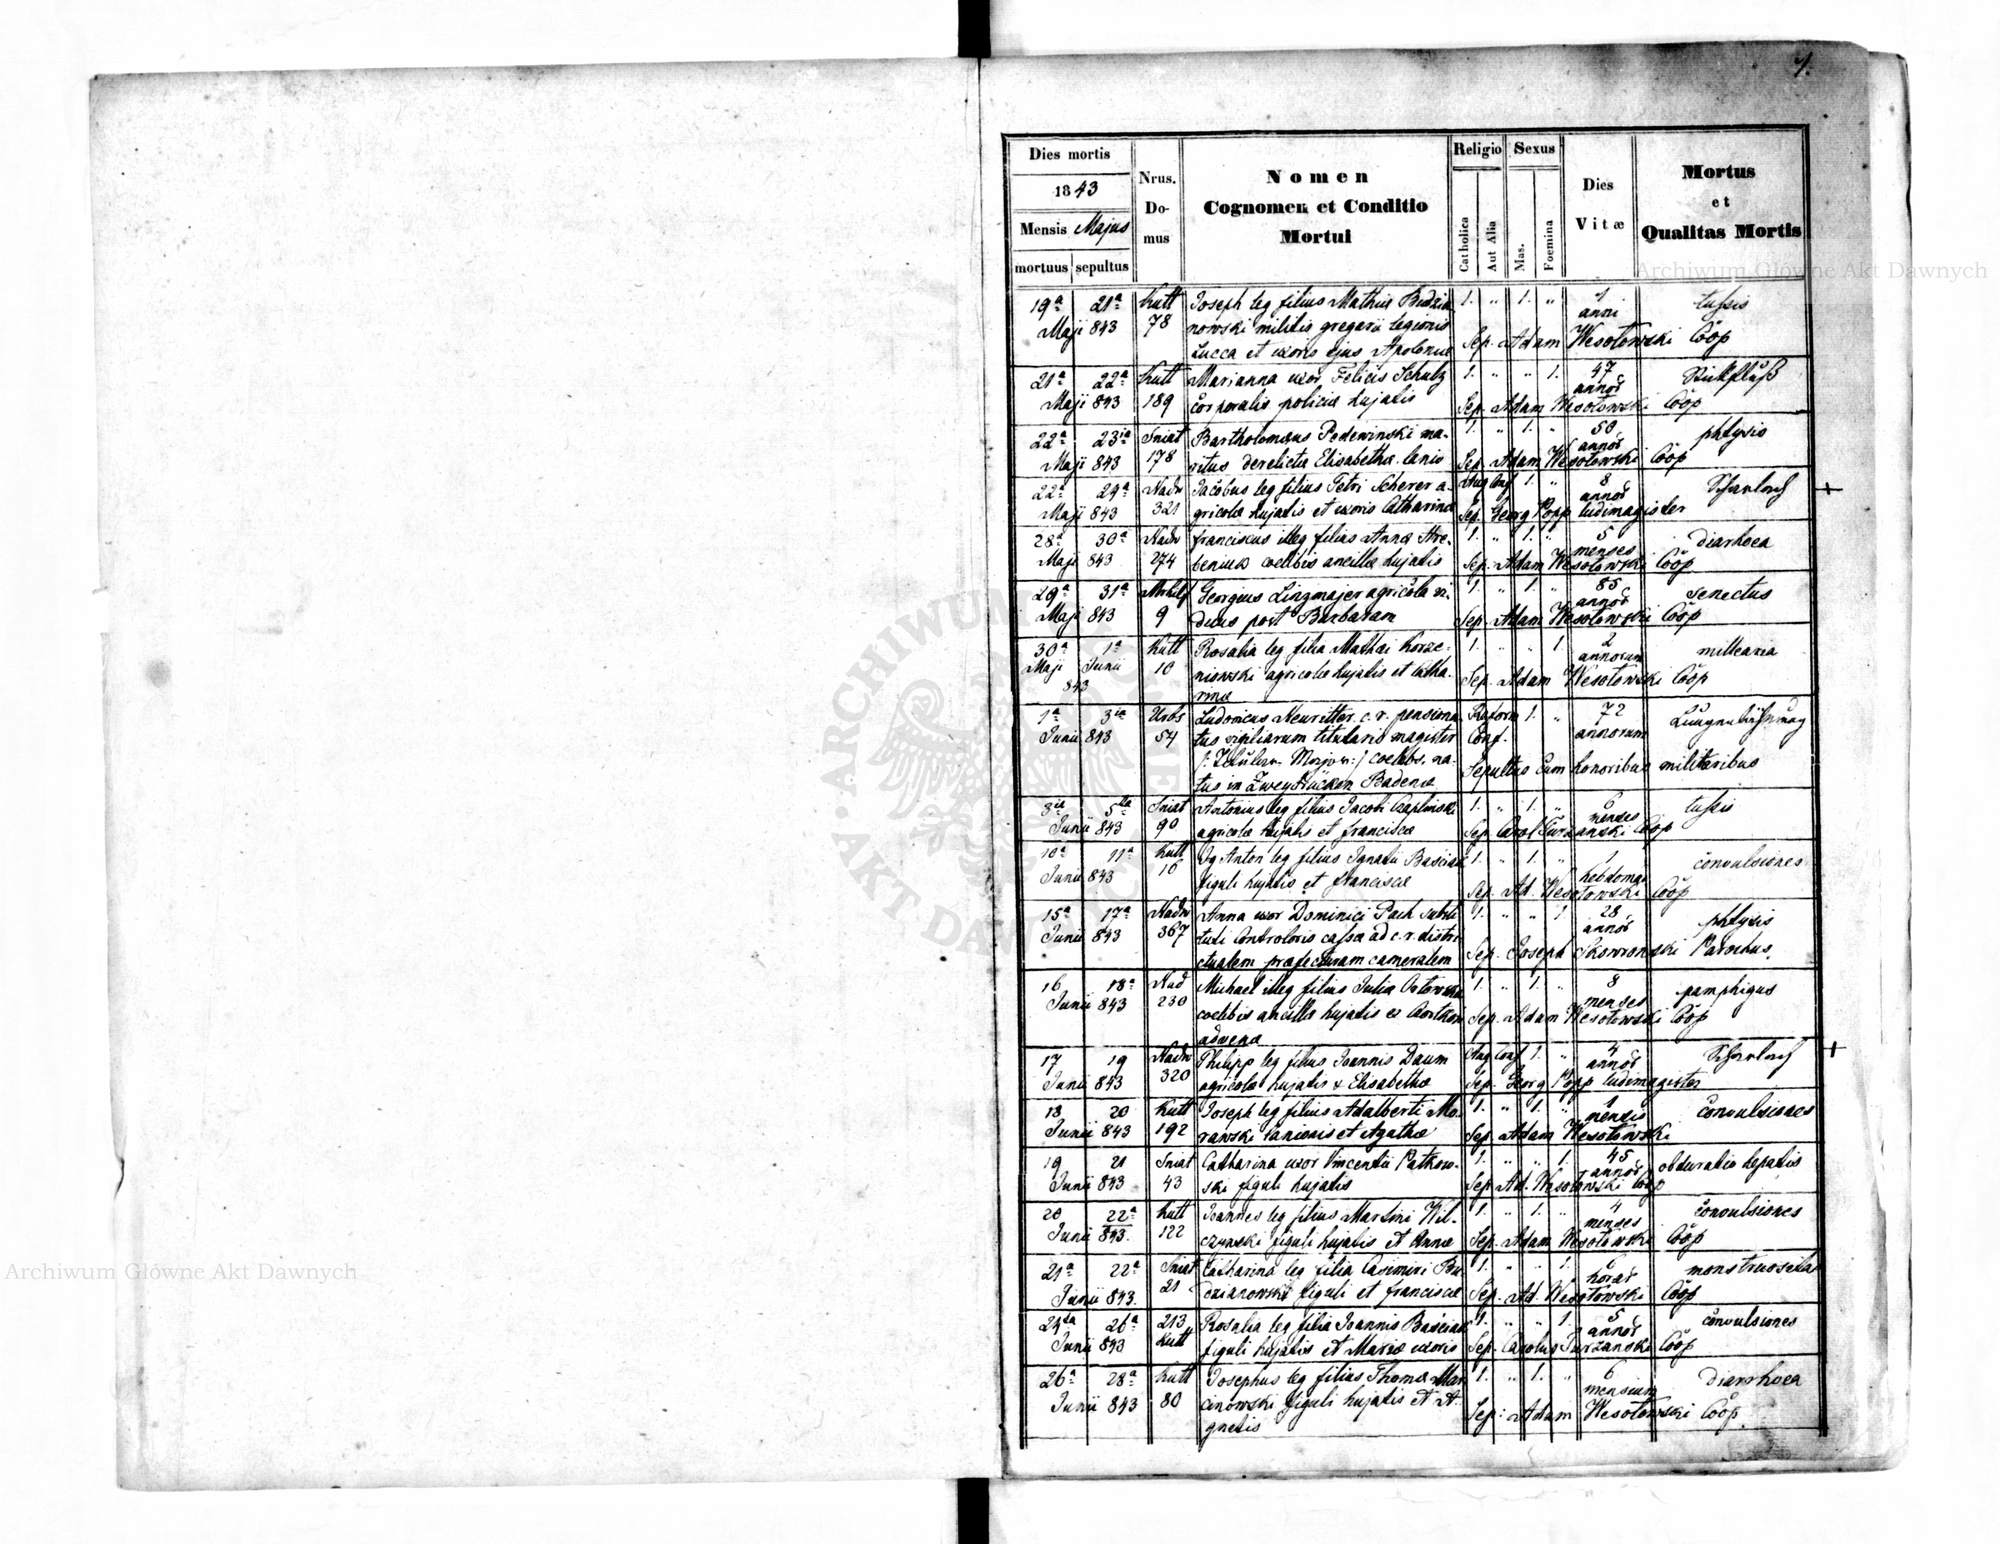 1.
Dies mortis
1843
Mensis Majus
mortuus sepultus
Nrus. Domus
Nomen
Cognomen et Conditio
Mortui
Religio
Catholica
Aut Alia
Sexus
Mas.
Foemina
Dies
Vitæ
Mortus
et
Qualitas Mortis
19ª 21ª Kutt Joseph leg filius Mathiæ Budzia 1. " 1. " anni tussis
Maji 843 78 nowski militis gregarii legionis
Lucca et uxoris ejus Apoloniæ Sep. Adam Wesołowski Coop
21ª 22ª Kutt Marianna uxor Felicis Schulz 1. " " 1. 47 annor Stickfluß
Maji 843 189 Corporalis policiæ hujatis Sep. Adam Wesołowski Coop
22ª 23ia Sniat Bartholomæus Pedewinski ma- 1. " 1. " 50 annor phtysis
Maji 843 178 ritus derelictæ Elisabethæ lanio Sep. Adam Wesołowski Coop
22ª 24ª Nadw Jacobus leg filius Petri Scherer a- Aug Conf 1. " 8 annor Scharlach
Maji 843 321 gricolæ hujatis et uxoris Catharinæ Sep. Georg Popp ludimagister
28ª 30ª Nadw franciscus illeg filius Annæ 1. " 1. " 5 menses diarhoea
Maji 843 274 coelibis ancillæ hujatis Sep. Adam Wesołowski Coop
29ª 31ª Georgius Linzmajer agricola vi- 1. " 1. " 85 annor senectus
Maji 843 9 duus post Barbaram Sep. Adam Wesołowski Coop
30ª 1ª Kutt Rosalia leg filia Mathæi Korze- 1. " " 1 2 annorum millearia
Maji Junii 10 niowski agricolæ hujatis et Catha-
843 rinæ Sep. Adam Wesołowski Coop
1ª 3ia Urbs Ludovicus Neuritter c. r. pensiona Reform 1. " 72 annorum
Junii 843 54 tus vigiliarum titularis magister Conf.
coelebs, na- Sepultus Cum honoribus militaribus
tus in Zweybrücken Badenæ
3ia 5ta Sniat Antonius leg filius Jacobi Czaplinski 1. " 1. " 6 menses tussis
Junii 843 90 agricolæ hujatis et franciscæ Sep. Carol Turzanski Coop
10ª 11ª Kutt Anton leg filius Ignatii Baściak 1. " 1. " 1 hebdoma convulsiones
Junii 843 16 figuli hujatis et franciscæ Sep. Ad. Wesołowski Coop
15ª 17ª Nadw Anna uxor Dominici Pach substi 1. " " 1 28 annor phtysis
Junii 843 367 tuti Controloris cassæ ad c. r. distri
ctualem præfecturam cameralem Sep. Joseph Skowronski Parochus.
16 18ª Nad Michael illeg filius Juliæ Ostowska 1. " 1. " 8 menses pamphigus
Junii 843 230 coelibis ancillæ hujatis ex Czortkow Sep. Adam Wesołowski Coop
advenæ
17 19 Nadw Philipp leg filius Joannis Daum Aug Conf 1. " 4 annor Scharlach
Junii 843 320 agricolæ hujatis & Elisabethæ Sep. Georg Popp ludimagister
18 20 Kutt Joseph leg filius Adalberti Mo- 1. " 1. " 1 mensis convulsiones
Junii 843 192 rawski lanionis et Agathæ Sep. Adam Wesołowski
19 21 Sniat Catharina uxor Vincentii Patkow- 1. " " 1. 45 annor obduratio hepatis
Junii 843 43 ski figuli hujatis Sep. Ad. Wesołowski Coop
20 22ª Kutt Joannes leg filius Martini Wil- 1. " 1. " 4 menses convulsiones
Junii 843. 122 czynski figuli hujatis et Annæ Sep. Adam Wesołowski Coop
21ª 22ª Sniat Catharina leg filia Casimiri Bu- 1. " " 1. horar monstruositas
Junii 843. 21 dzianowski figuli et franciscæ Sep. Ad. Wesołowski Coop
24ta 26ª 213 Rosalia leg filia Joannis Baściak 1. " " 1. 5 annor convulsiones
Junii 843 Kutt figuli hujatis et Mariæ uxoris Sep. Carolus Turzanski Coop
26ª 28ª Kutt Josephus leg filius Thomæ Mar 1. " 1. " 6 mensium diarrhoea
Junii 843 80 cinowski figuli hujatis et A-
gnetis Sep: Adam Wesołowski Coop.
Archiwum Główne Akt Dawnych
Archiwum Główne Akt Dawnych
ARCHIWUM GŁÓWNE AKT DAWNYCH